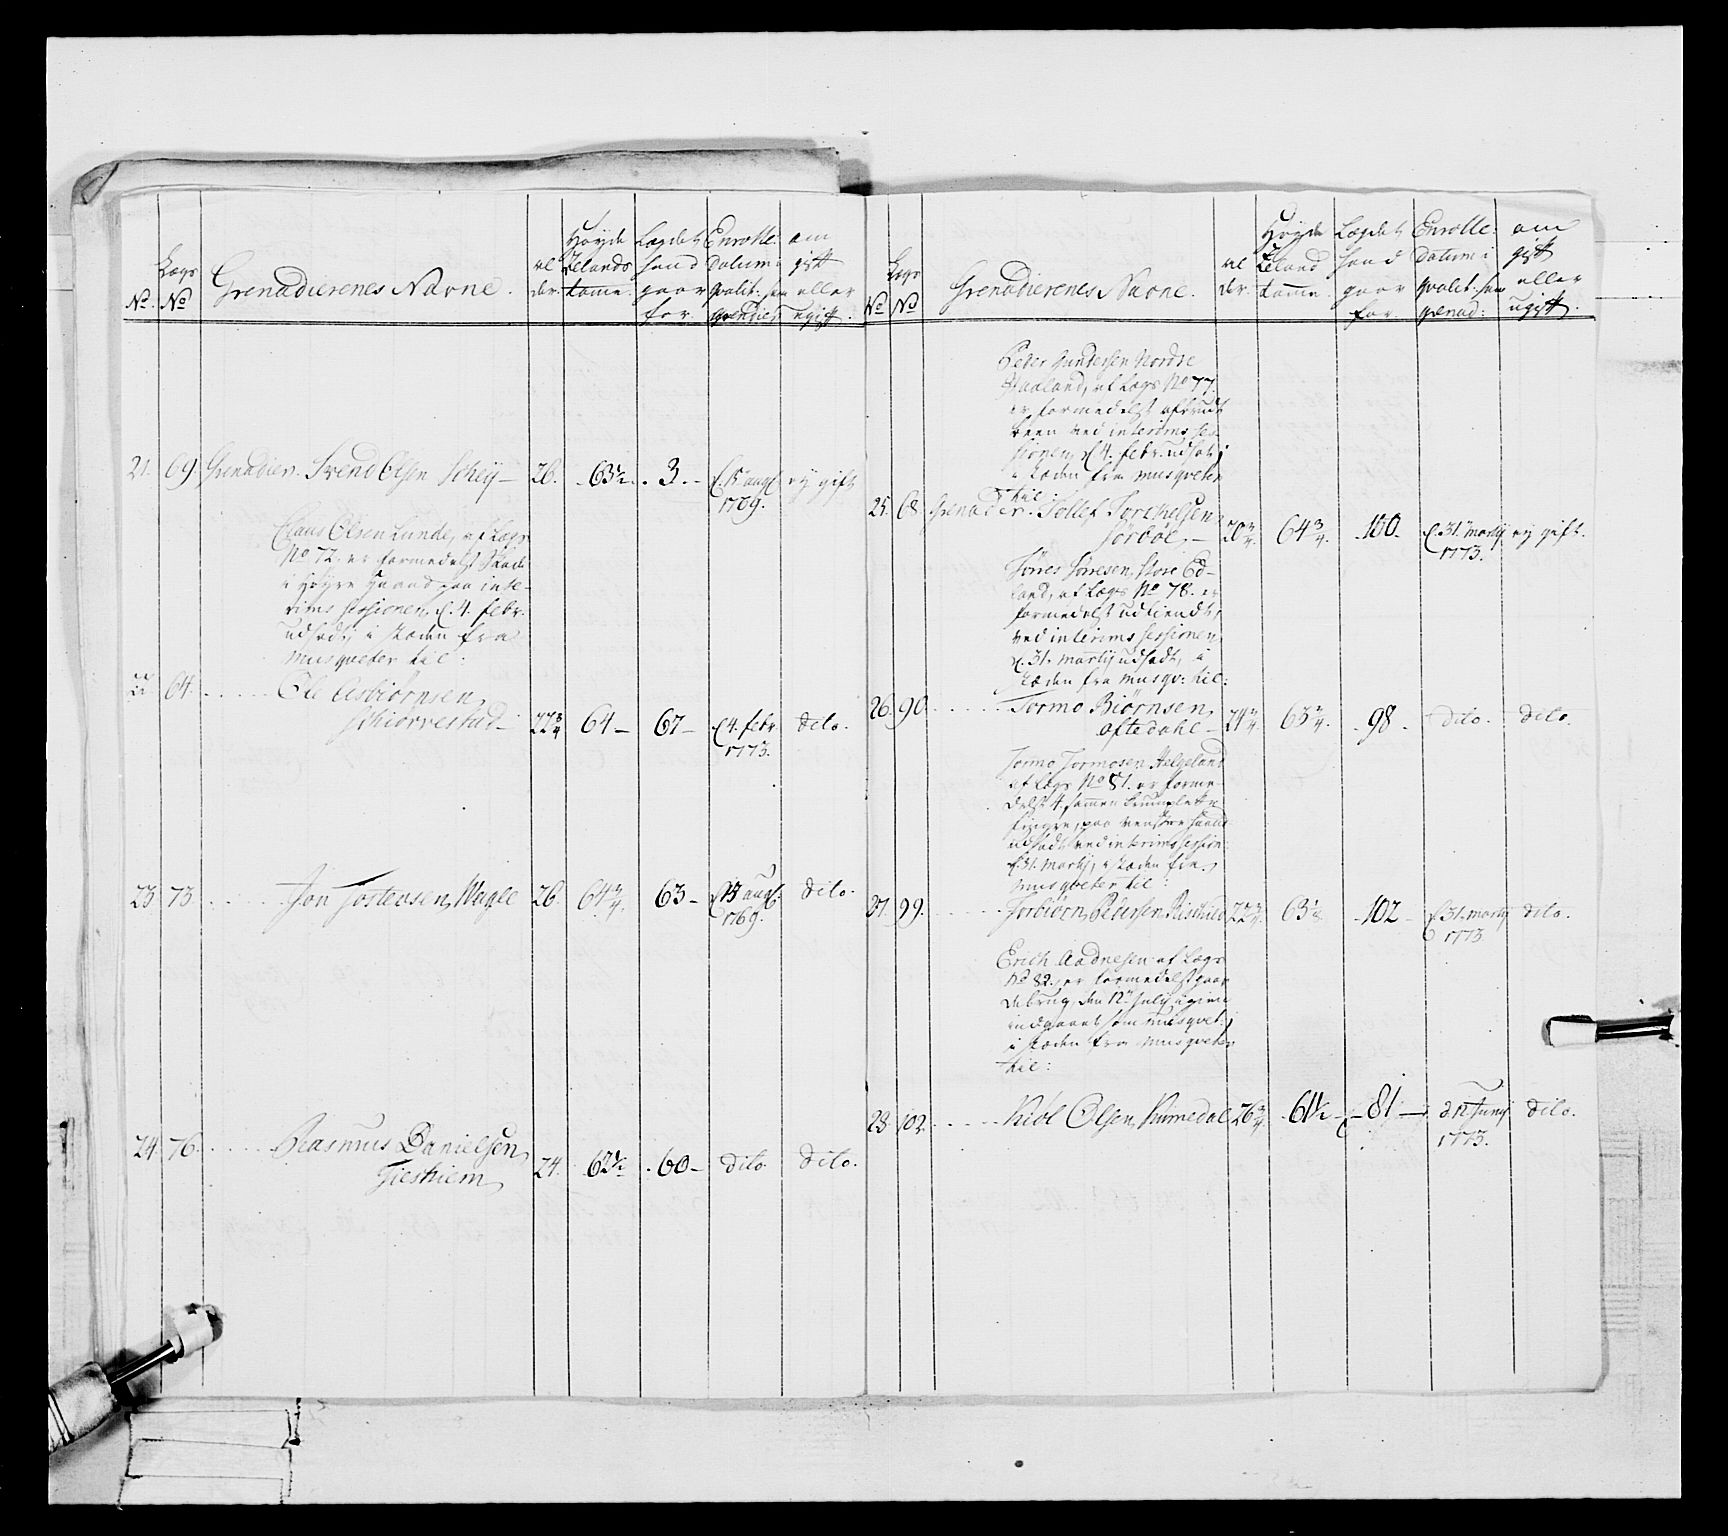 No. Lægs No Grenadierenes Navne. al der. Høyde Zelands tomme. Lægdet hand gaar for Enrolle: Datum i qvalit: som grendier om gift eller ugift.
21. 69 Grenadier. Svend Olsen Scheij — 26. 63½. 3. — d. 15 aug. 1769. ej gift
Claus Olsen Lunde, af Lægs
No 72. er formedelst Skade
i høyre Haand paa inte-
rims sessionen d. 4. febr.
udsadt, i stæden fra
Musqveter til:
22 64. Ole Asbiørnsen
Schiørvestad — 22¾ 64 — 67 — d. 4. febr. 1773. dito.
23 73. Jon Jostensen Wagle 26. 64¾. 63 — d. 15 aug. 1769. dito.
24. 76. Rasmus Danielsen
Tieshiem 24. 62½ 60 — dito. dito.
No Lægs No Grenadierenes Navne. al der. Høyde Zeland tomme. Lægdet hand gaar for Enrolle: Datum i qvalit: som grenad: om gift eller ugift.
Peder Gundersen Nordre
Haaland, af Lægs No 77.
er formedelst afbrudt
been ved interims ses-
sionen d. 4. febr. udsat;
i stæden fra musqveter
til:
25. 68. Grenadier. Tollef Torchelsen
Sørbøe, — 20¾. 64¾. 100. d. 31. martij 1773. ej gift.
Tørres Tørresen, Store Ed-
land, af Lægs No 78. er
formedelst udtiendt,
ved interims sessionen
d. 31. martij udsadt, i
stæden fra musqv: til:
26. 90. Tormo Biørnsen
Oftedahl — 24¾. 63¾. 98. dito. dito.
Tormo Tormosen Helgeland
af Lægs No 81. er forme-
delst 4. sammen krumplette
fingre, paa venstre haand
udsadt ved interims session
d. 31. martij, i stæden fra
musqveter til:
27. 99. Torbiørn Pedersen 22¾ 63⅛ 102 — d. 31. martij 1773. dito.
Erich Aadnesen af Lægs
No 82. er formedelst gaar-
debrug, den 12te July igien
indgaaet som musqvet:
i stæden fra musqveter
til:
28. 102. Kiøl Olsen Rumedal 26¾. 61½ — 81 — d. 12 Junij 1773. dito.